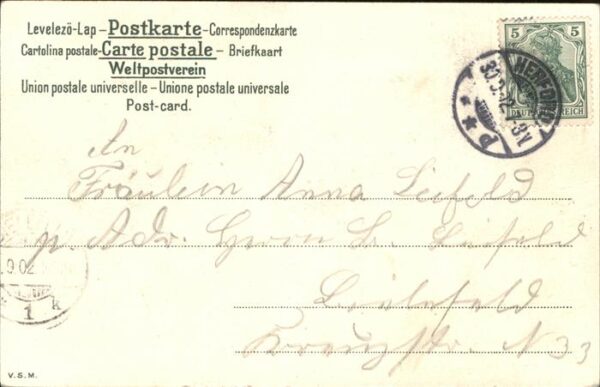 Levelező-Lap – Postkarte – Correspondenzkarte
Cartolina postale – Carte postale – Briefkaart
Weltpostverein
Union postale universelle – Unione postale universale
Post-card.
5 5
DEUTSCHES REICH
HERFORD
An
Fräulein Anna Liefeld
p. Adr. Herrn Liefeld
Bielefeld
Kreuzstr. N 33
9 02
1 k
V. S. M.